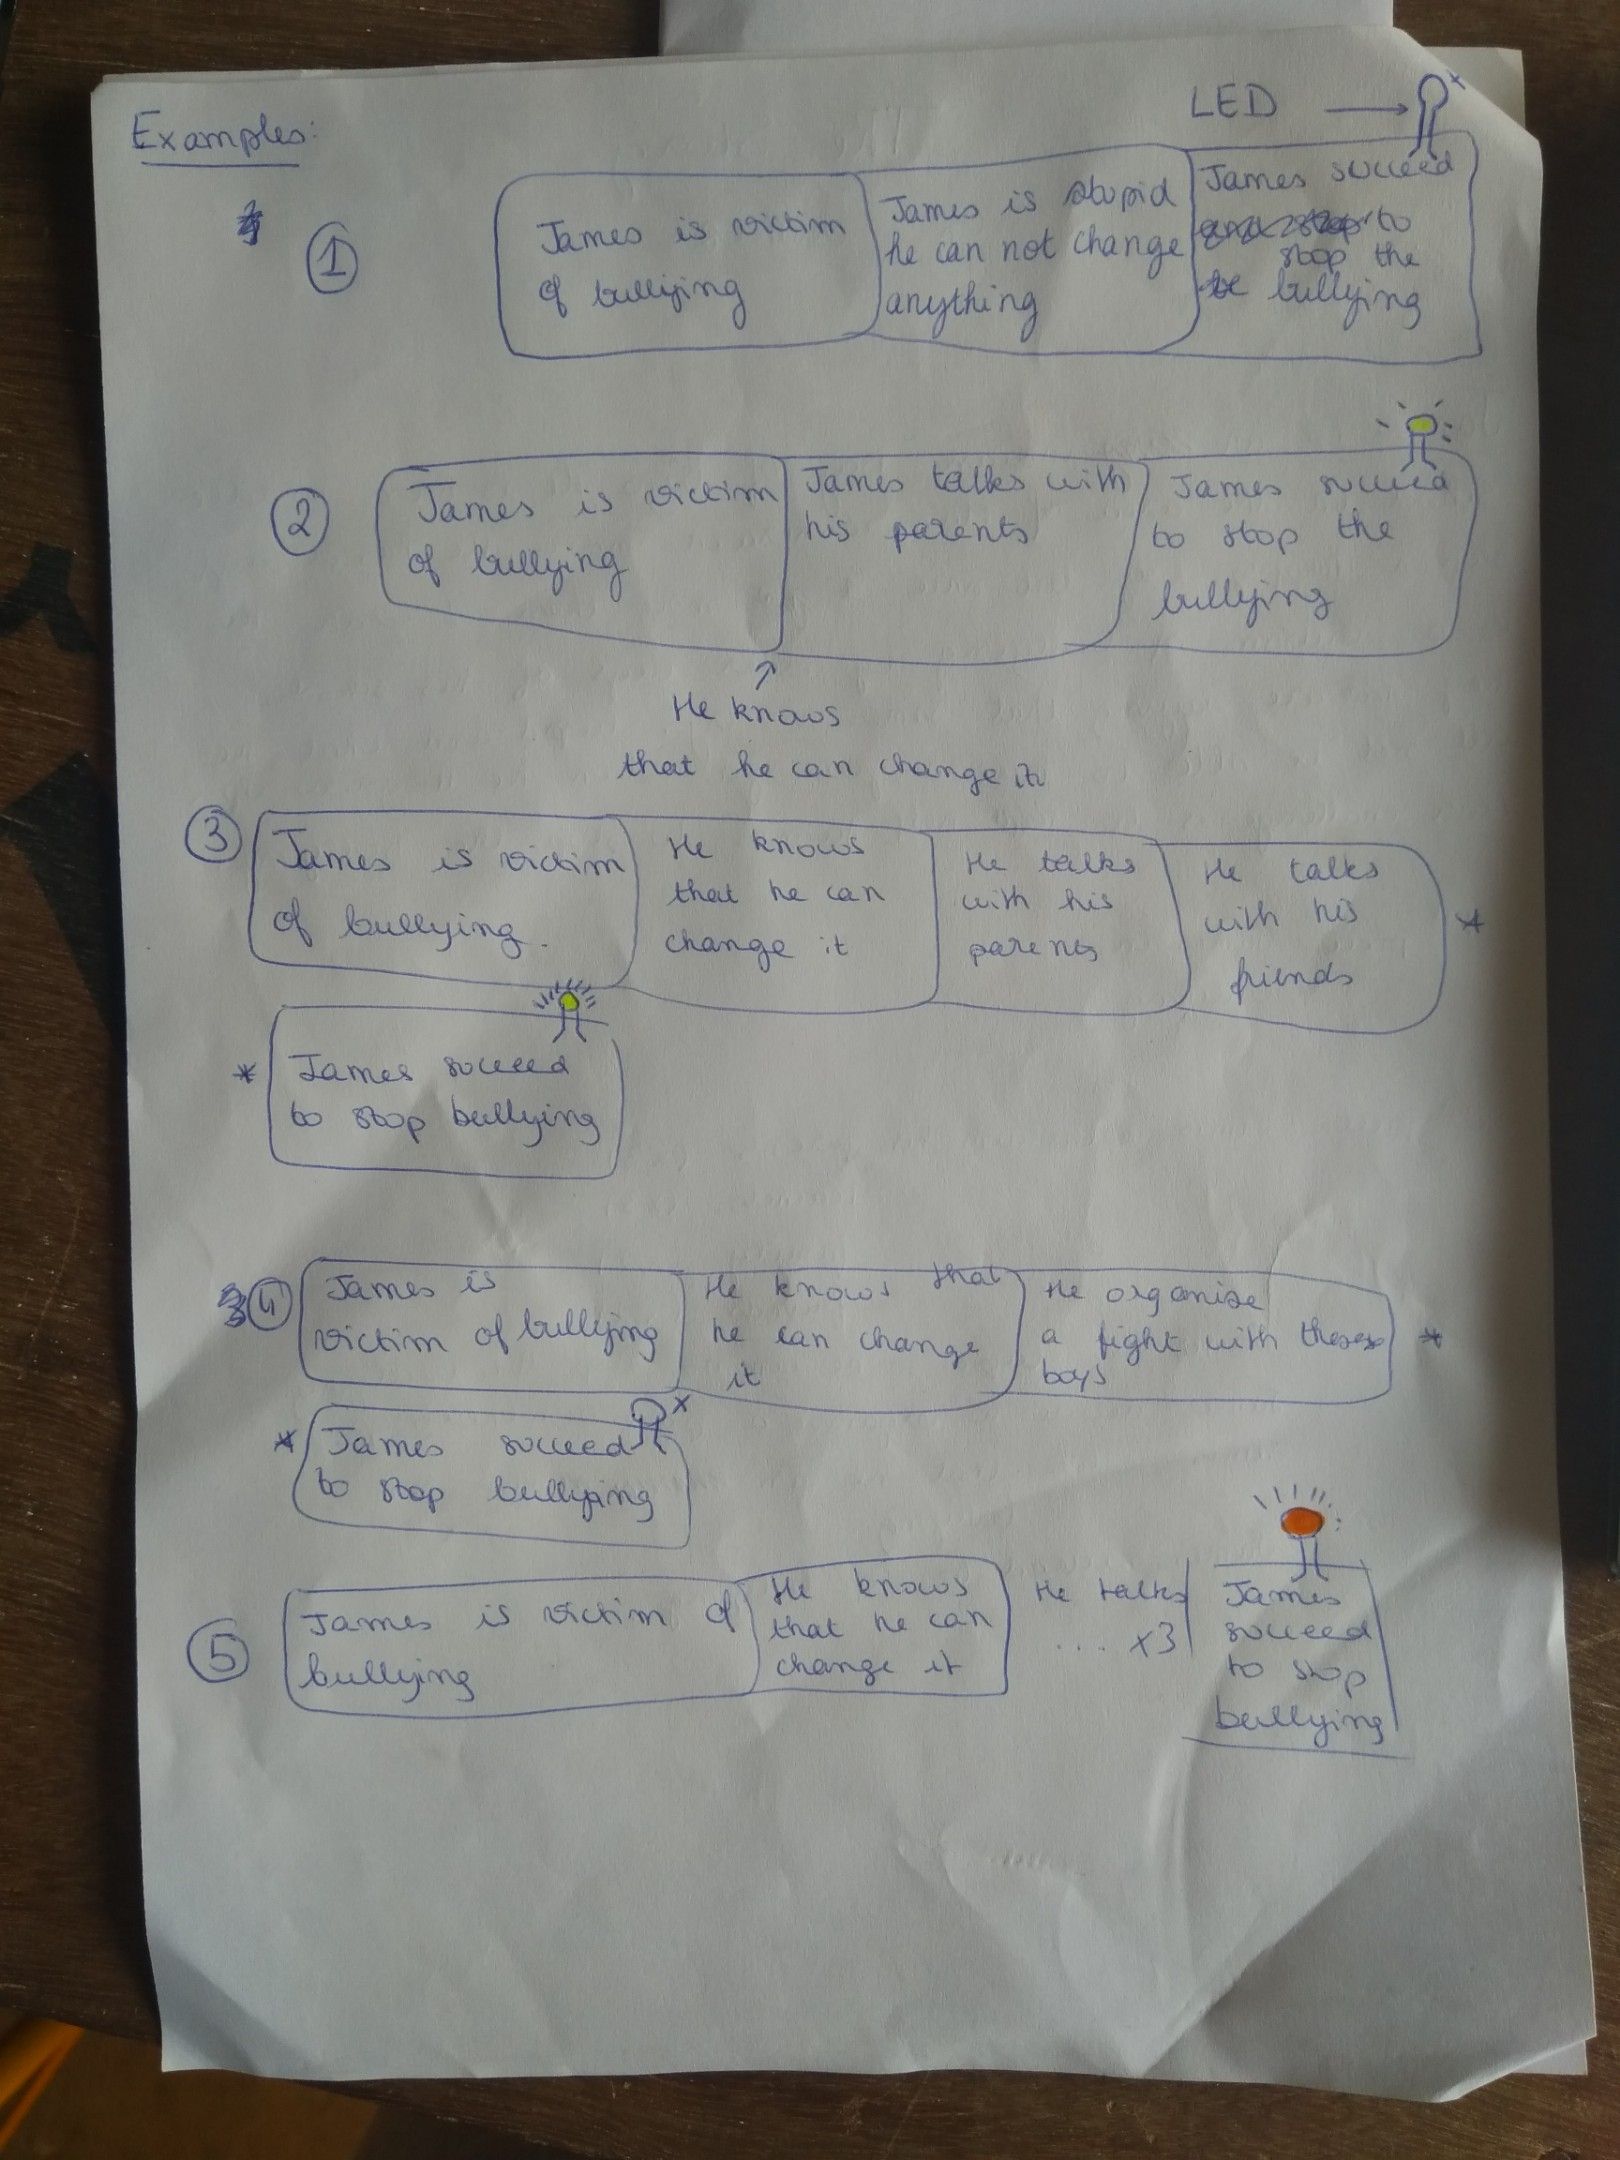 LED
Examples:
①
James is victim
of bullying
James is stupid
he can not change
anything
James succeed
to
stop the
bullying
②
James is victim
of bullying
James talks with
his parents
James succeed
to stop the
bullying
He knows
that he can change it
③
James is victim
of bullying.
He knows
that he can
change it
He talks
with his
parents
He talks
with his
friends
*
*
James succeed
to stop bullying
④
James is
victim of bullying
He knows that
he can change
it
He organize
a fight with these
boys
*
*
James succeed
to stop bullying
⑤
James is victim of
bullying
He knows
that he can
change it
He talks
... x3
James
succeed
to stop
bullying